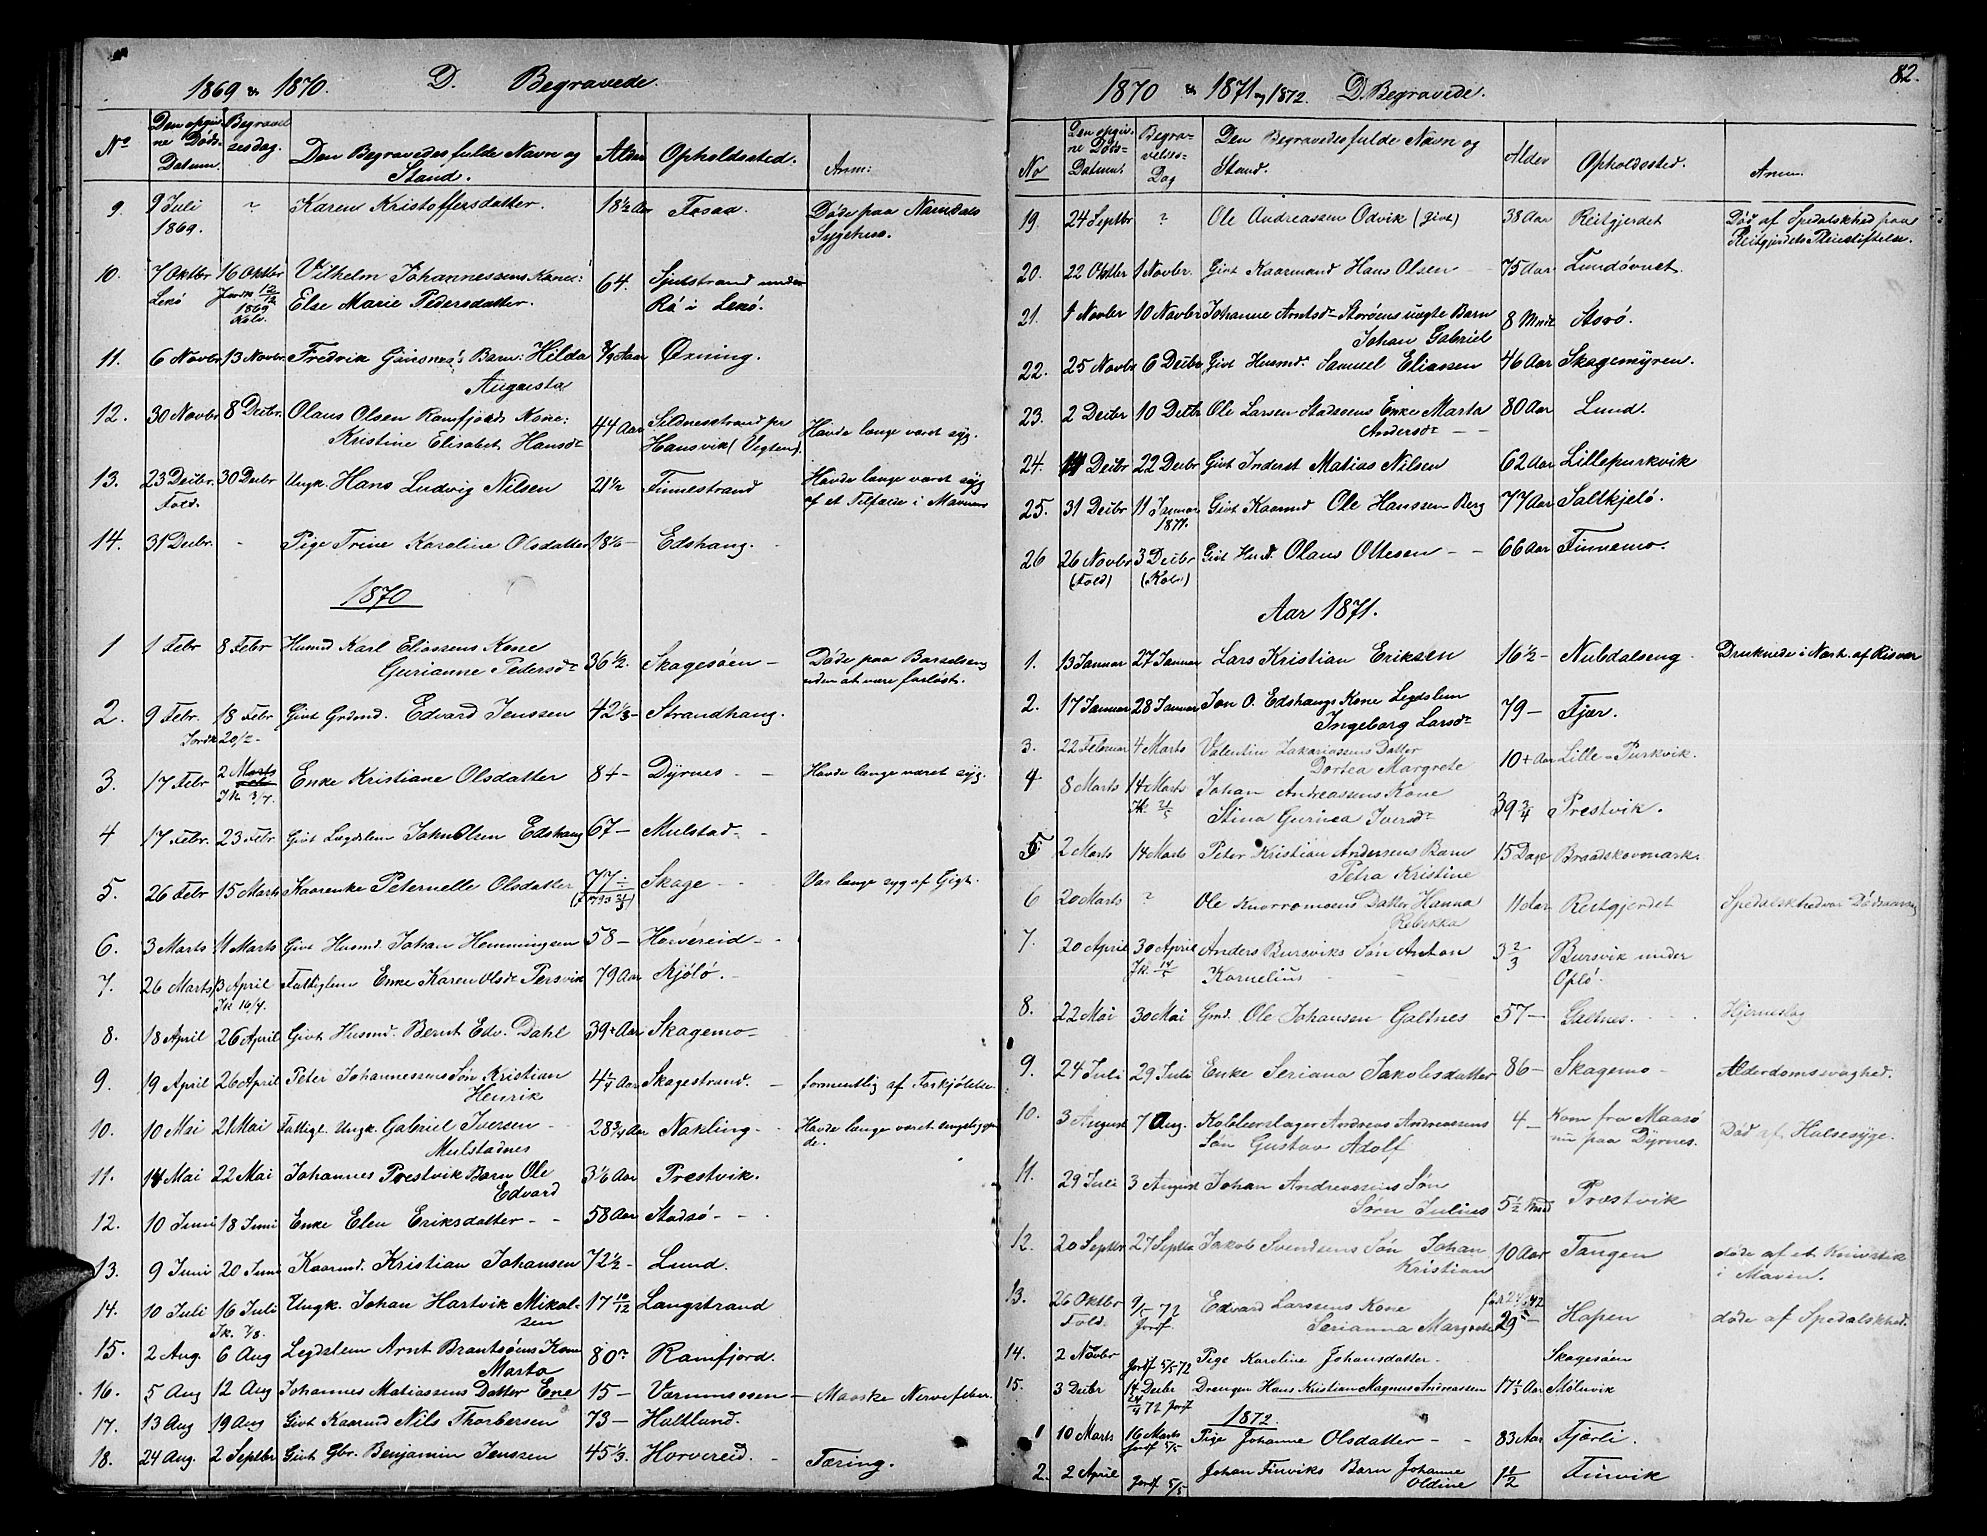 1869 & 1870. D. Begravede.
No Den opgivne Døds-Datum. Begravelsesdag. Den Begravedes fulde Navn og Stand. Alder Opholdssted. Anm:
9. 9 Juli 1869. ? Karen Kristoffersdatter. 18½ Aar Fosaa. Døde paa Namdals Sygehus.
10. 7 Oktbr Lekø 16 Oktbr Jordk 12/12 1869 Kolv. Vilhelm Johannessens Kone: Else Marie Pedersdatter. 64. under Rø i Lekø.
11. 6 Novbr 13 Novbr. Fredrik Barn: Hilda Augusta Aar Øxning.
12. 30 Novbr 8 Decbr. Olaus Olsen Ramfjords Kone: Kristine Elisabet Hansdr 44 Aar Hansvik (Vigten). Havde længe været syg.
13. 23 Decbr. Fold. 30 Decbr Ungk. Hans Ludvig Nilsen 21½ Finnestrand Havde længe været syg af et Tilfælde i Maven
14. 31 Decbr. - Pige Trine Karoline Olsdatter Edshaug.
1870
1 1 Febr 8 Febr Husmd Karl Eliassens Kone Gurianne Pedersdr 36½. Skagesøen - Døde paa Barselseng uden at være forløst.
2. 9 Febr. 18 Febr Jordk 20/2 - Givt Grdmd. Edvard Jenssen 42⅓ - Strandhaug.
3. 17 Febr 2 Marts Jk 3/7. Enke Kristiane Olsdatter 84 - Dyrnes - - Havde længe været syg.
4 17 Febr. 23 Febr Givt Lægdslem John Olsen Edshaug 67 - Mulstad - -
5. 26 Febr 15 Marts Kaarenke Peternelle Olsdatter 77 - Skage - - Var længe syg af Gigt.
6. 3 Marts 11 Marts Givt Husmd. Johan Hemmingsen 58 - Horvereid - -
7. 26 Marts 3 April Jk 16/7. Fattiglem Enke Karen Olsdr Persvik 79 Aar Kjølø. -
8. 18 April 26 April Givt Husmd. Bernt Edv. Dahl 39 Aar Skagemo -
9. 19 April 26 April Peter Johannessens Søn Kristian Henrik Aar Skagestrand. - formentlig af Forkjølelse.
10. 10 Mai 21 Mai Fattigl. Ungk. Gabriel Iversen - Mulstadnes 28¾ Aar Nakling - - Havde længe været sengeliggende.
11. 14 Mai 22 Mai Johannes Prestvik Barn Ole Edvard 3⅙ Aar Prestvik.
12. 10 Juni 18 Juni Enke Elen Eriksdatter - - 58 Aar Stadsø - -
13. 9 Juni 20 Juni Kaarmd. Kristian Johansen 72½ - Lund.
14. 10 Juli 16 Juli Jk. 7/8. Ungk. Johan Hartvik Mikalsen 17 10/12 Langstrand
15. 2 Aug. 6 Aug Legdslem Arnt Brantsøens Kone Marta 80 - Ramfjord.
16. 5 Aug 12 Aug Johannes Matiassens Datter Ene 15 - Værumssen - Maaske Nervefeber.
17. 13 Aug 19 Aug Givt Kaarmd Nils Thorbersen 73 - Haltland.
18. 24 Aug. 2 Septbr Givt Gbr. Benjamin Jenssen 45⅓. Horvereid. - Tæring.
82.
1870 & 1871 og 1872. D. Begravede.
No Den opgivne Døds-Datum. Begravelses-Dag Den Begravedes fulde Navn og Stand. Alder Opholdssted. Anm.
19. 24 Septbr ? Ole Andreassen Odvik (givt) 38 Aar Reitgjerdet Død af Spedalskhed paa Reitgjerdets Pleiestiftelse.
20. 22 Oktbr 1 Novbr. Givt Kaarmand Hans Olsen - - 75 Aar Lundøvnet.
21. 4 Novbr 10 Novbr Johanne Arntsdr Storøens uægte Barn Johan Gabriel 8 Mndr Storø.
22. 25 Novbr 6 Decbr Givt Husmd. Samuel Eliassen 46 Aar Skagemyren.
23. 2 Decbr 10 Decbr Ole Larsen Stadsøens Enke Marta Andersdr - - 80 Aar Lund.
24. 14 Decbr 22 Decbr Givt Inderst Matias Nilsen 62 Aar Lillepurkvik
25. 31 Decbr 11 Januar 1871. Givt Kaarmd Ole Hanssen Berg 77 Aar Saltkjelø.
26 26 Novbr (Fold) 3 Decbr (Kolv) Givt Husmd. Olaus Ottesen - - 66 Aar Finnemo.
Aar 1871.
1. 13 Januar 27 Januar Lars Kristian Eriksen 16½ - Nubdalseng. Druknede i Nærh. af Risvær
2. 17 Januar 28 Januar Jon O. Edshaugs Kone Legdslem Ingeborg Larsdr 79 - Fjær.
3. 22 Februar 4 Marts Valentin Zakariassens Datter Dortea Margrete 10 Aar Lille-Purkvik.
4 8 Marts 14 Marts Jk. 21/5 Johan Andreassens Kone Stina Gurine Iversdr 39¾ Prestvik.
5 2 Marts 14 Marts Peter Kristian Andersens Barn Petra Kristine 15 Dage Braadskovmark.
6 20 Marts ? Ole Knorromoens Datter Hanna Rebekka 11 Aar Reitgjerdet Spedalskhed var Dødsaarsag
7. 20 April 30 April Jk. 14/5 Anders Bursviks Søn Anton Kornelius - 3⅔ Bursvik under Opløi.
8. 22 Mai 30 Mai Gmd. Ole Johansen Galtnes 57 - Galtnes. Hjerneslag
9. 24 Juli 29 Juli Enke Seriana Jakobsdatter 86 - Skagemo - Alderdomssvaghed.
10. 3 August 7 Aug. Kobberslager Andreas Andreassens Søn Gustav Adolf 4 - Kom fra Maasø nu paa Dyrnes. Død af Halsesyge.
11. 29 Juli 3 August Johan Andreassens Søn Sørn Julius 5½ Mnd Præstvik
12. 20 Septbr 27 Septbr Jakob Svendsens Søn Johan Kristian 10 Aar Tangen døde af et Knivstik i Maven.
13. 26 Oktbr Fold. 9/5 72 Jordf. Edvard Larssens Kone Serianna Margrete 29 - Hopen døde af Spedalskhed.
14. 2 Novbr Jordf 5/5 72 Pige Karoline Johansdatter - Skagesøen
15. 3 Decbr 14 Decbr 24/4 72 Jordf Drengen Hans Kristian Magnus Andreassen 17⅓ Aar Mølnvik
1872.
1 10 Marts 16 Marts Jordf 5/5 Pige Johanne Olsdatter - - 83 Aar Fjærli.
2. 2 April Jordf 5/5 Johan Finviks Barn Johanne Oldine 1½ Finvik